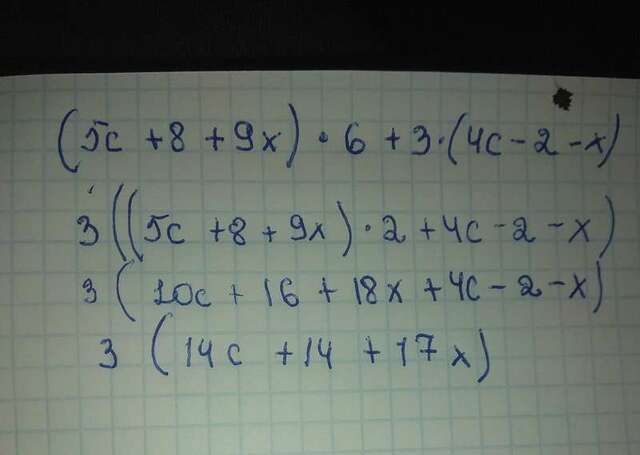 (5c + 8 + 9x) · 6 + 3 · (4c - 2 - x)
3 ((5c + 8 + 9x) · 2 + 4c - 2 - x)
3 (10c + 16 + 18x + 4c - 2 - x)
3 (14c + 14 + 17x)